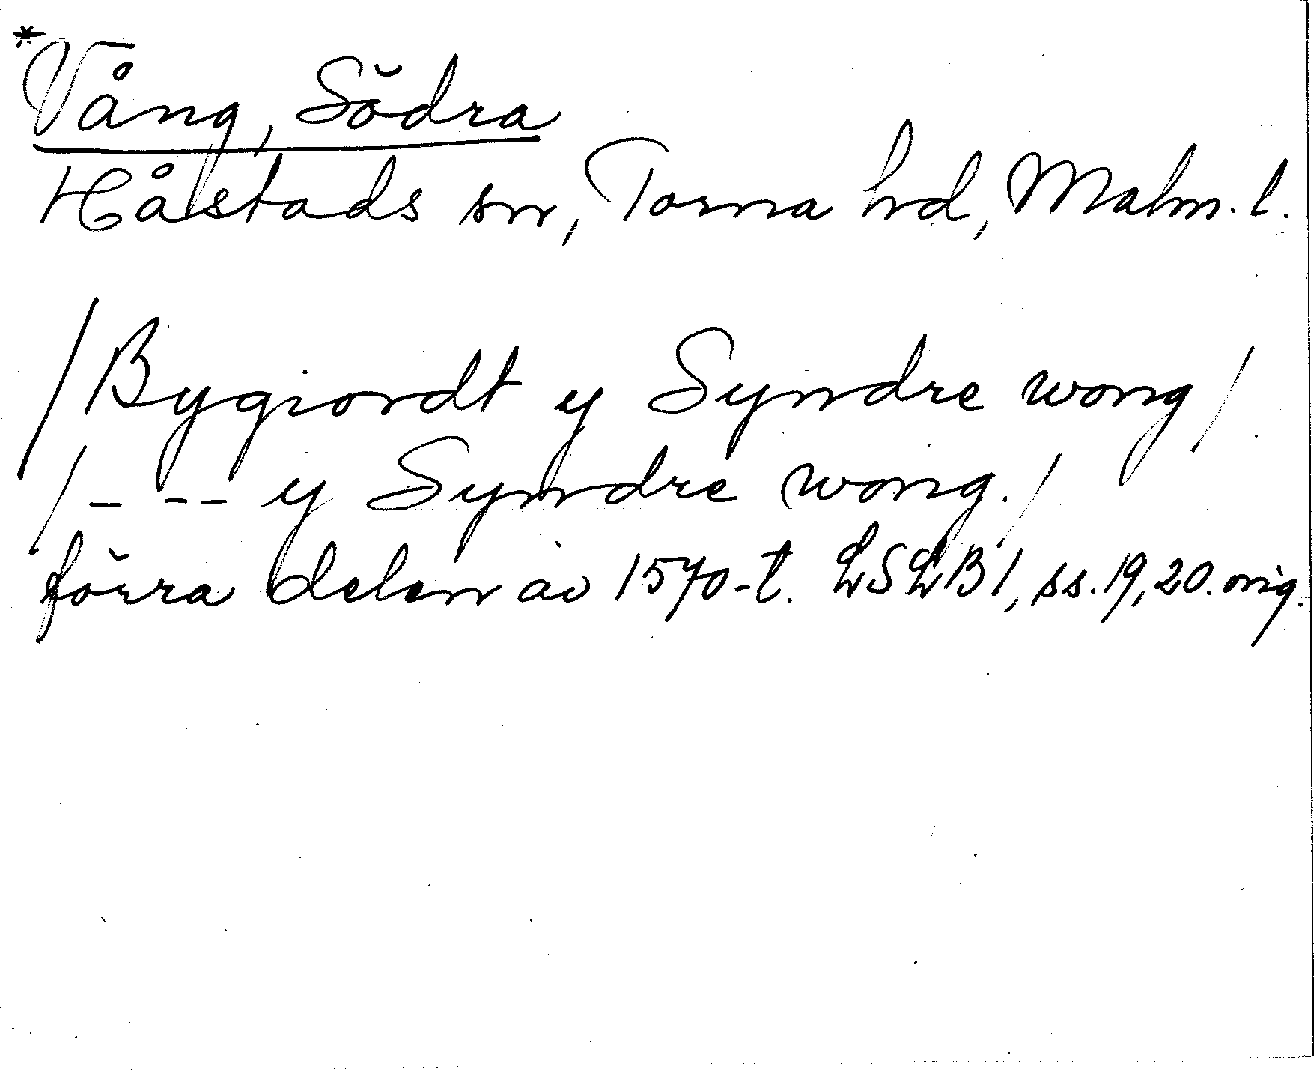 *Vång, Södra
Håstads sn, Torna hd, Malm. l.
/Bygiordt y Syndre wong/
/_ _ _ y Syndre wong./
förra delen av 1570-t. LSLB 1, ss. 19, 20. orig.